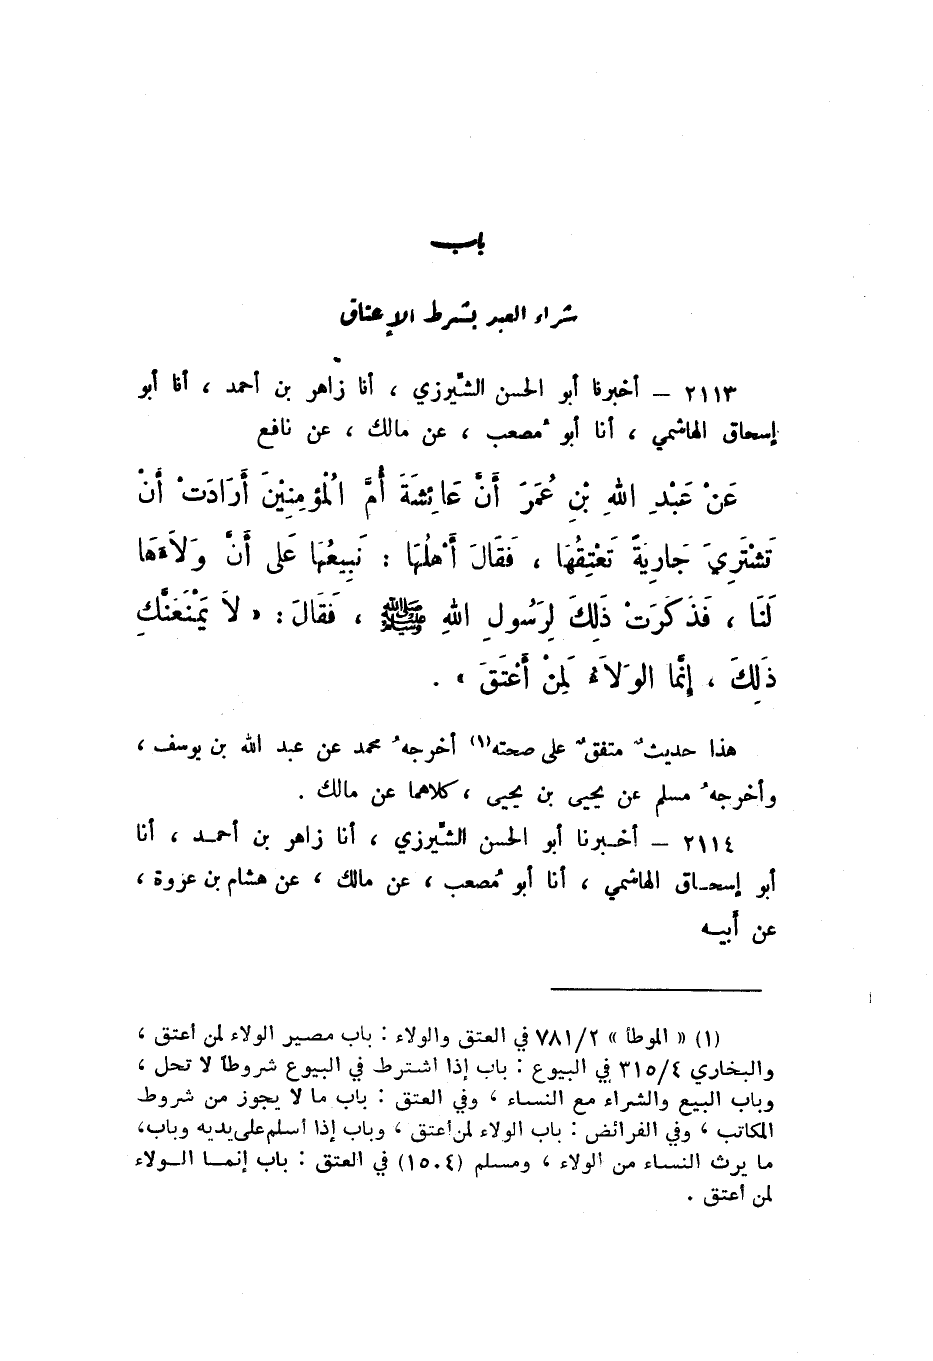 باب
شراء العبد بشرط الإعتاق
٢١١٣ – أخبرنا أبو الحسن الشِّيرزي ، أنا زاهر بن أحمد ، أنا أبو
إسحاق الهاشمي ، أنا أبو مُصعب ، عن مالك ، عن نافع
عَنْ عَبْدِ اللهِ بْنِ عُمَرَ أَنَّ عَائِشَةَ أُمَّ الْمُؤمِنِيْنَ أَرَادَتْ أَنْ
تَشْتَرِيَ جَارِيَةً تَعْتِقُهَا ، فَقَالَ أَهْلُهَا : نَبِيعُهَا عَلى أَنَّ وَلاَءَهَا
لَنَا ، فَذَكَرَتْ ذَلِكَ لِرَسُولِ اللهِ ﷺ ، فَقَالَ : « لاَ يَمْنَعَنَّكِ
ذَلِكَ ، إِنَّمَا الوَلاَءُ لِمَنْ أَعْتَقَ » .
هذا حديثٌ متفقٌ على صحته(١) أخرجهُ محمد عن عبد الله بن يوسف ،
وأخرجهُ مسلم عن يحيى بن يحيى ، كلاهما عن مالك .
٢١١٤ – أخـبرنا أبو الحسن الشِّيرزي ، أنا زاهر بن أحمـد ، أنا
أبو إسحـاق الهاشمي ، أنا أبو مُصعب ، عن مالك ، عن هشام بن عروة ،
عن أبيـه
(١) « الموطأ » ٧٨١/٢ في العتق والولاء : باب مصير الولاء لمن أعتق ،
والبخاري ٣١٥/٤ في البيوع : باب إذا اشترط في البيوع شروطاً لا تحل ،
وباب البيع والشراء مع النساء ، وفي العتق : باب ما لا يجوز من شروط
المكاتب ، وفي الفرائض : باب الولاء لمن أعتق ، وباب إذا أسلم على يديه وباب،
ما يرث النساء من الولاء ، ومسلم (١٥٠٤) في العتق : باب إنمـا الـولاء
لمن أعتق .